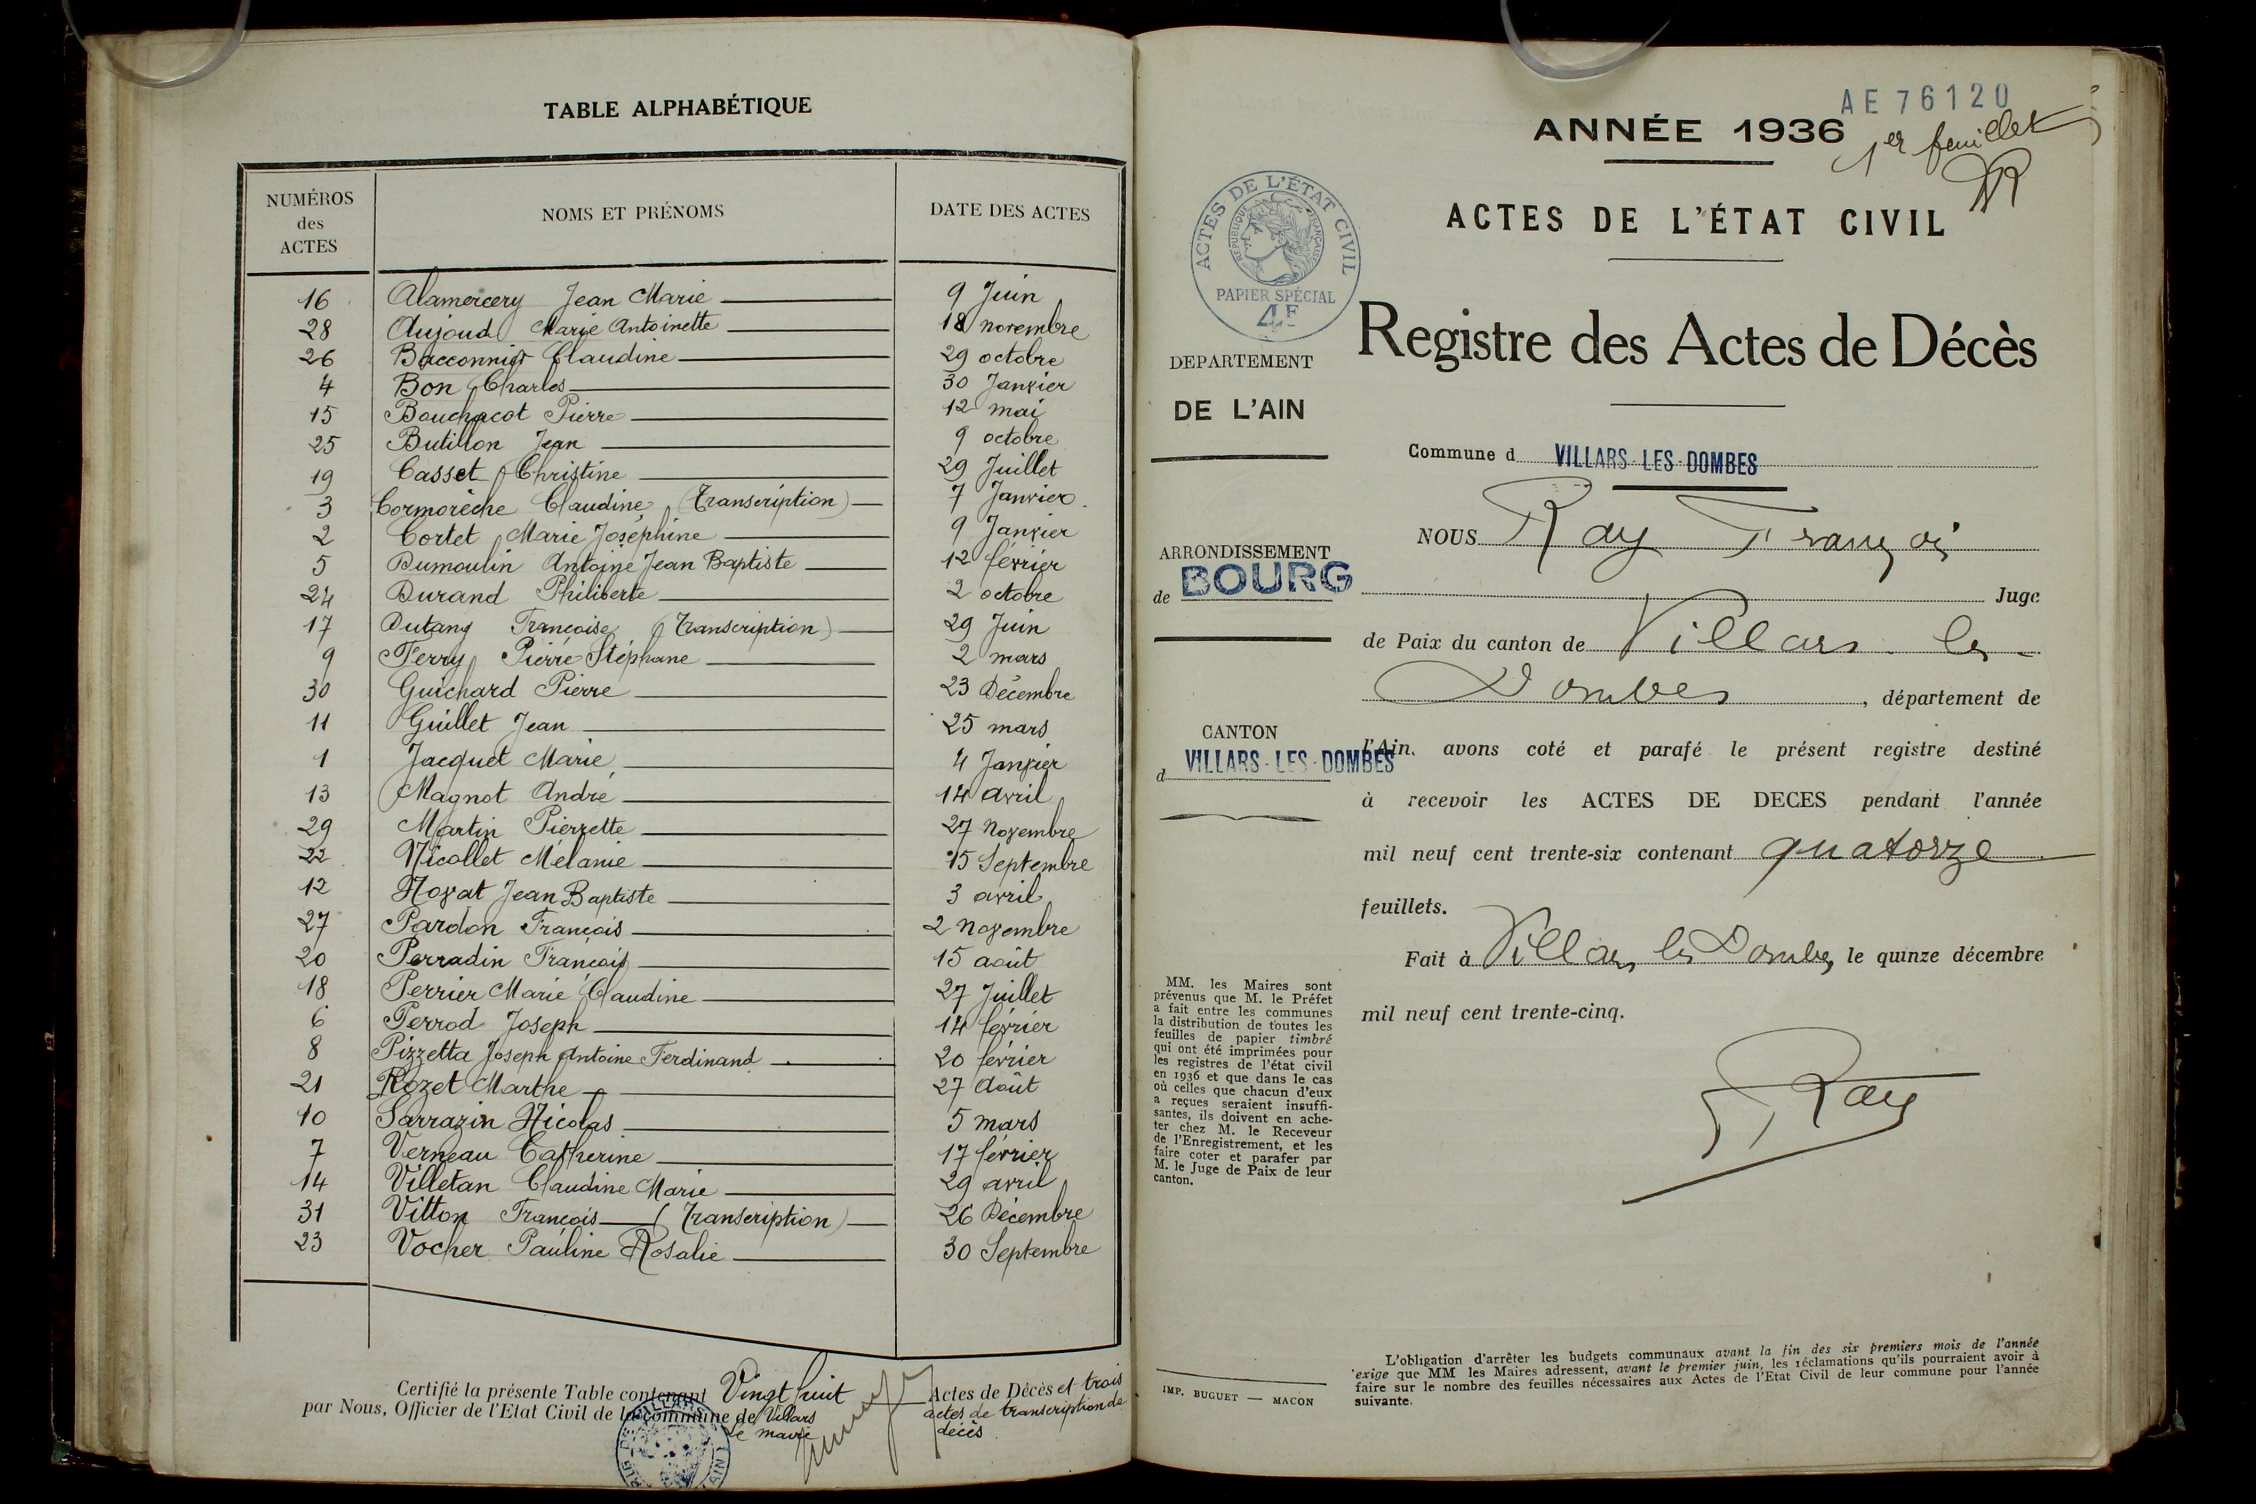 TABLE ALPHABÉTIQUE
NUMÉROS des ACTES NOMS ET PRÉNOMS DATE DES ACTES
16 Alamercery Jean Marie 9 Juin
28 Aujoud Marie Antoinette 18 novembre
26 Bacconnier Claudine 29 octobre
4 Bon Charles 30 Janvier
15 Bouchacot Pierre 12 mai
25 Butillon Jean 9 octobre
19 Casset Christine 29 Juillet
3 Cormorèche Claudine (Transcription) 7 Janvier
2 Cortet Marie Joséphine 9 Janvier
5 Dumoulin Antoine Jean Baptiste 12 février
24 Durand Philiberte 2 octobre
17 Dutang Françoise (Transcription) 29 Juin
9 Ferry Pierre Stéphane 2 mars
30 Guichard Pierre 23 Décembre
11 Guillet Jean 25 mars
1 Jacquet Marie 4 Janvier
13 Magnot André 14 avril
29 Martin Pierrette 27 Novembre
22 Nicollet Mélanie 15 Septembre
12 Noyat Jean Baptiste 3 avril
27 Pardon François 2 Novembre
20 Perradin François 15 août
18 Perrier Marie Claudine 27 Juillet
6 Perrod Joseph 14 février
8 Pizzetta Joseph Antoine Ferdinand 20 février
21 Rozet Marthe 27 Août
10 Sarrazin Nicolas 5 mars
7 Verneau Catherine 17 février
14 Villetan Claudine Marie 29 avril
31 Vitton François (Transcription) 26 Décembre
23 Vocher Pauline Rosalie 30 Septembre
Certifié la présente Table contenant Vingt huit Actes de Décès et trois
par Nous, Officier de l'Etat Civil de la commune de Villars actes de transcription de
Le maire décès
AE 76120
ANNÉE 1936
1er feuillet
ACTES DE L'ÉTAT CIVIL
ACTES DE L'ÉTAT CIVIL
RÉPUBLIQUE FRANÇAISE
PAPIER SPÉCIAL
4F
Registre des Actes de Décès
DEPARTEMENT
DE L'AIN
Commune d VILLARS-LES-DOMBES
ARRONDISSEMENT
de BOURG
CANTON
d VILLARS-LES-DOMBES
NOUS Ray François
Juge
de Paix du canton de Villars-les-
Dombes, département de
l'Ain, avons coté et parafé le présent registre destiné
à recevoir les ACTES DE DECES pendant l'année
mil neuf cent trente-six contenant quatorze
feuillets.
Fait à Villars les Dombes, le quinze décembre
mil neuf cent trente-cinq.
Ray
MM. les Maires sont
prévenus que M. le Préfet
a fait entre les communes
la distribution de toutes les
feuilles de papier timbré
qui ont été imprimées pour
les registres de l'état civil
en 1936 et que dans le cas
où celles que chacun d'eux
a reçues seraient insuffi-
santes, ils doivent en ache-
ter chez M. le Receveur
de l'Enregistrement, et les
faire coter et parafer par
M. le Juge de Paix de leur
canton.
IMP. BUGUET — MACON
L'obligation d'arrêter les budgets communaux avant la fin des six premiers mois de l'année
exige que MM les Maires adressent, avant le premier juin, les réclamations qu'ils pourraient avoir à
faire sur le nombre des feuilles nécessaires aux Actes de l'Etat Civil de leur commune pour l'année
suivante.